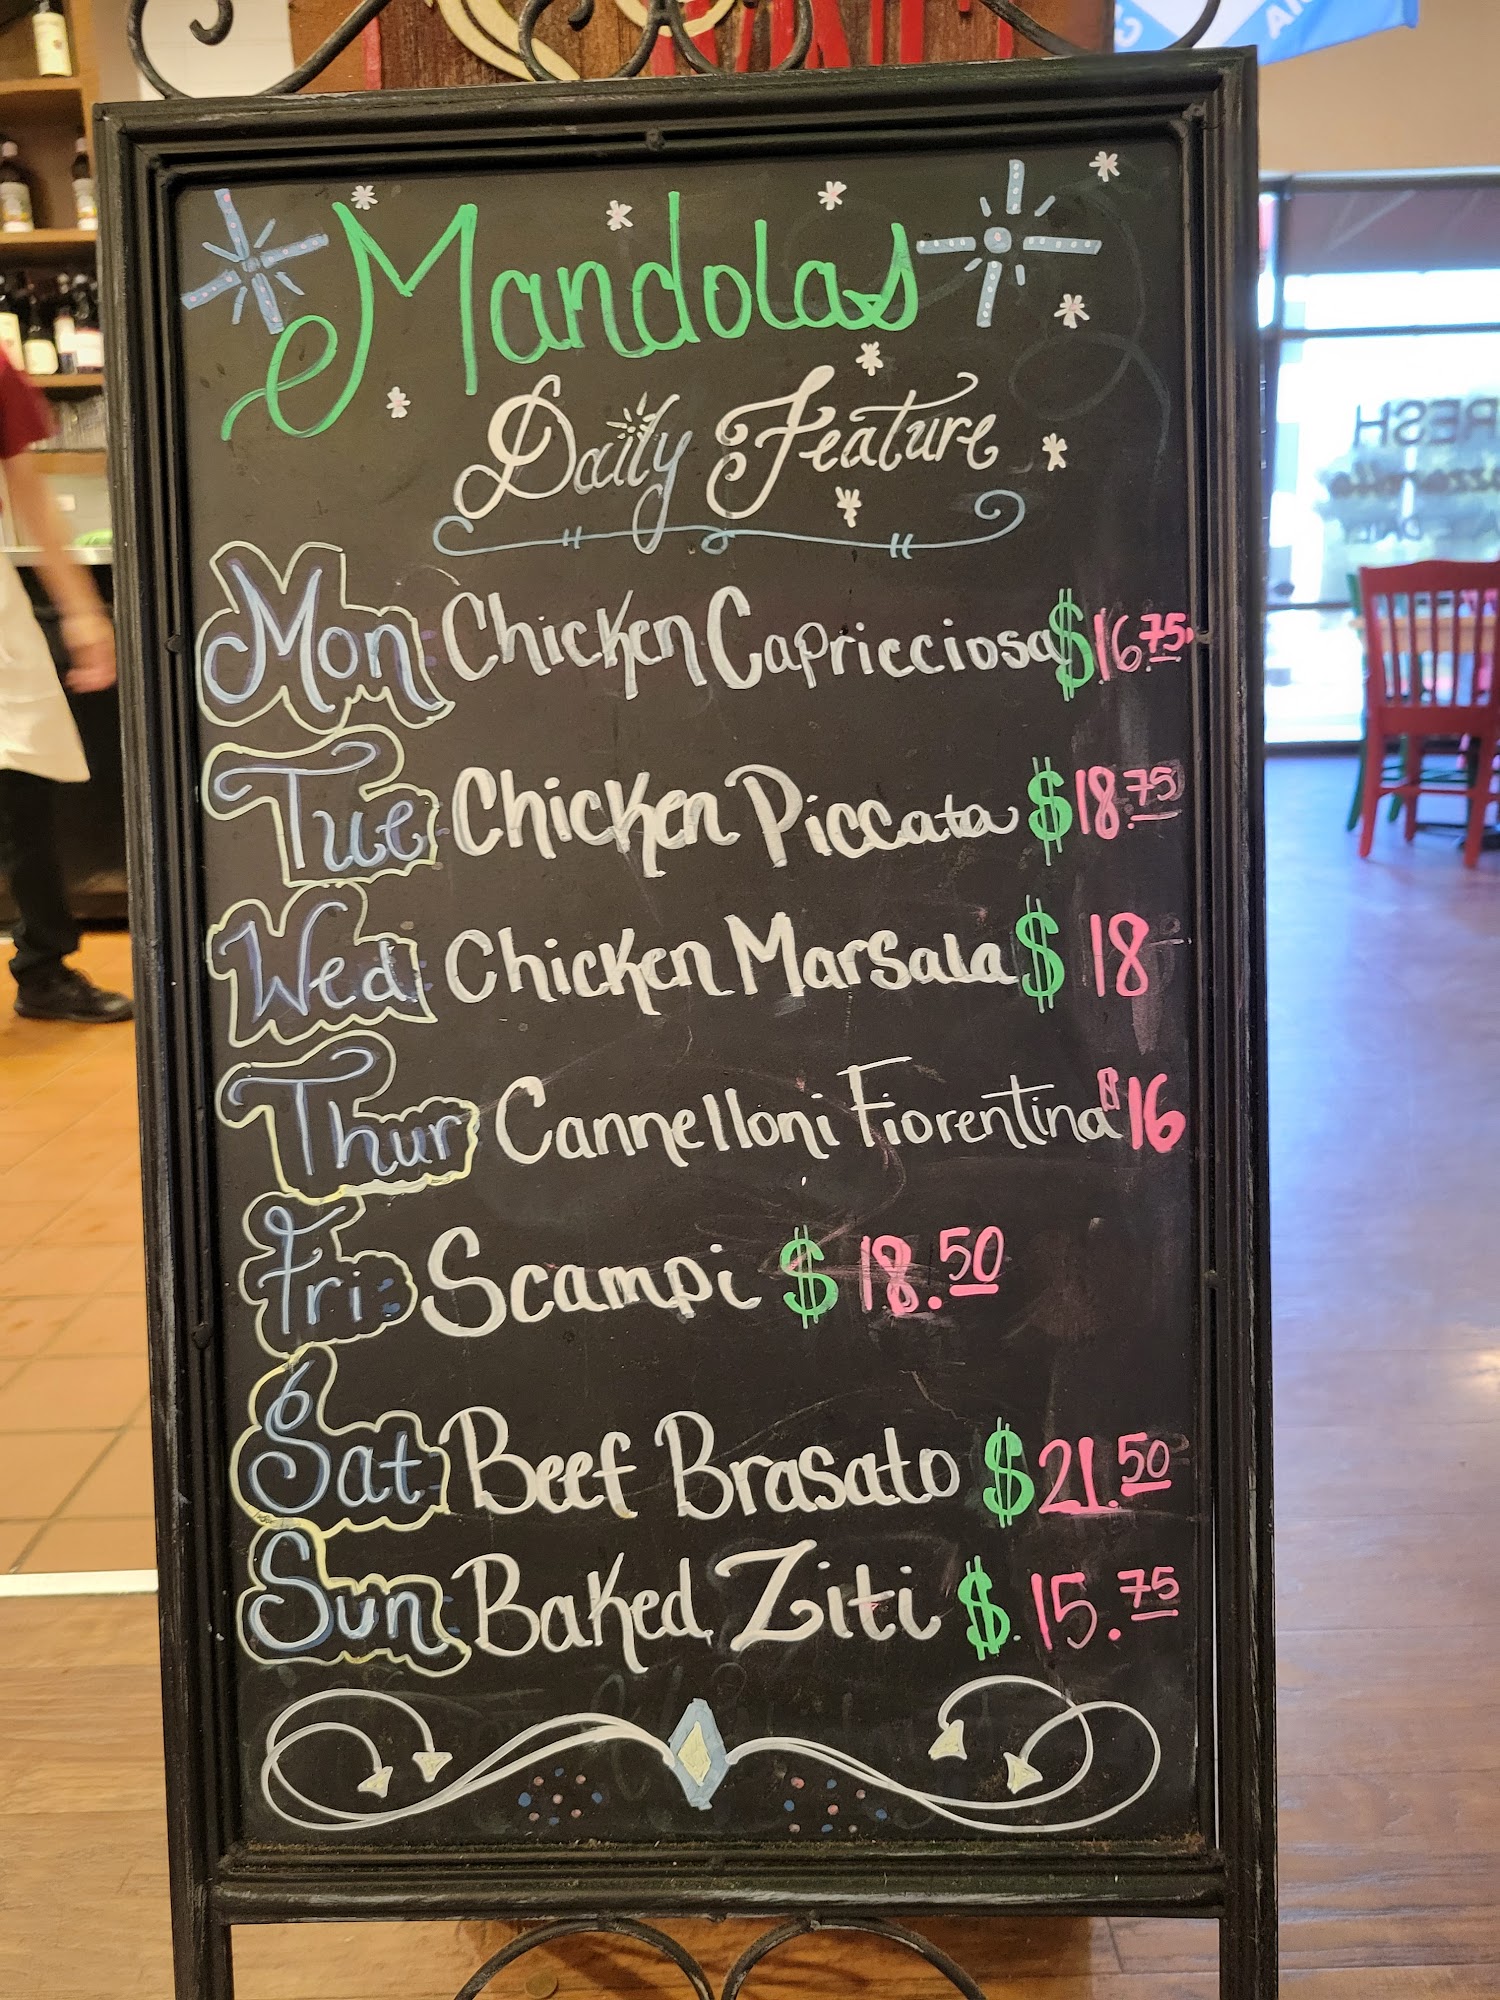 Mandolas
Daily Feature
Mon Chicken Capricciosa $16.75
Tue Chicken Piccata $18.75
Wed Chicken Marsala $18
Thur Cannelloni Fiorentina $16
Fri Scampi $18.50
Sat Beef Brasato $21.50
Sun Baked Ziti $15.75